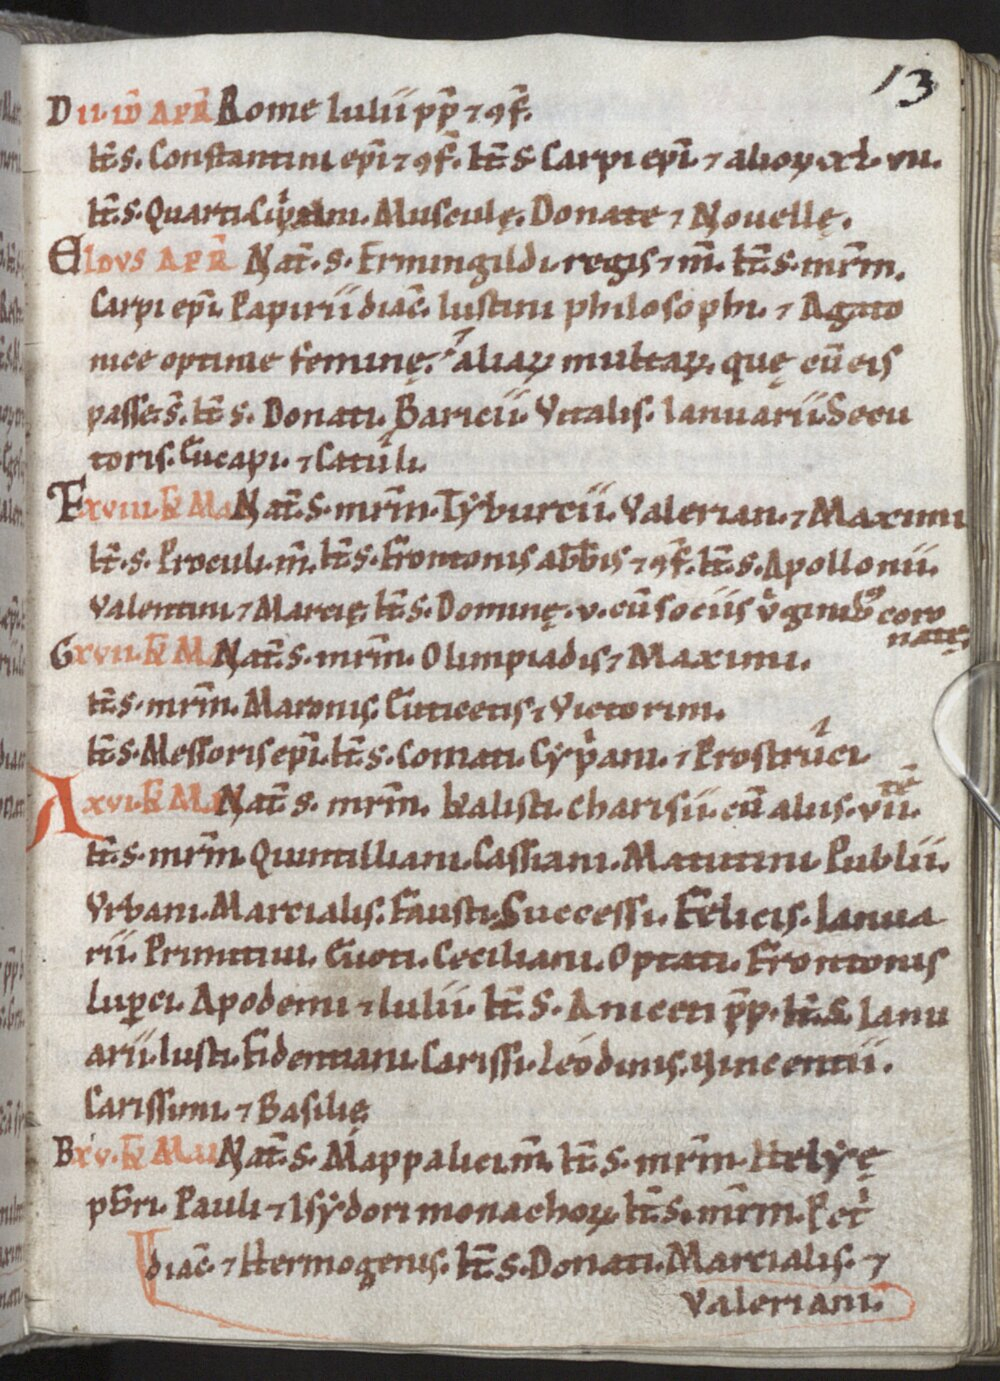 13
D II. ID̄ APR̄ Rome Iulii pp̄ ⁊ ꝯf̄.
It̄.s. Constantini ep̄i ⁊ ꝯf̄. It̄.s. Carpi ep̄i. ⁊ alioꝝ xl. vii.
It̄.s. Quarti. Cip̲ani. Musculę. Donate ⁊ Nouellę.
E IDVS APR̄ Nat̄.s. Ermingildi regis ⁊ m̄. It̄.s. mr̄m.
Carpi ep̄i. Papirii diac̄. Iustini philosophi. ⁊ Agato
nice optime feminę. ⁊ aliaꝝ multaꝝ. quę cū eis
passe s̄. It̄.s. Donati. Baricii. Vitalis. Ianuarii. Secu
toris. Cucapi. ⁊ Catuli.
F xviii. k̄ Ma Nat̄.s. mr̄m. Tyburcii. Valerian. ⁊ Maximi
It̄.s. Proculi. m̄. It̄.s. Frontonis abb̄is ⁊ ꝯf̄. It̄.s. Apollonii.
Valentini ⁊ Marcię. It̄.s. Dominę. v. cū sociis v̊ginib; coro
natę.
G xvii. k̄ M Nat̄.s. mr̄m. Olimpiadis ⁊ Maximi.
It̄.s. mr̄m. Maronis. Euticetis ⁊ Victorini.
It̄.s. Messoris ep̄i. It̄.s. Comati. Cyp̲ani. ⁊ Prostruci.
A xvi. k̄ Ma Nat̄.s. mr̄m. Kalisti. charisii. cū aliis. vii. tē
It̄.s. mr̄m Quintilliani. Cassiani. Matutini Publii.
Vrbani. Marcialis. Fausti. Successi. Felicis. Ianua
rii. Primitiui. Euoti. Ceciliani. Optati. Frontonis
Luꝑci. Apodemi ⁊ Iulii. It̄.s. Aniceti pp̄. It̄.s. Ianu
arii. Iusti. Fidentiani. Carissi. Leodinis. Vincentii.
Carissimi. ⁊ Basilię
B xv. k̄ Mai Nat̄.s. Mappalici m̄. It̄.s. mr̄m. Helyę
pb̄ri. Pauli ⁊ Isydori monachoꝝ. It̄.s. mr̄m. Pet̊
diac̄. ⁊ Hermogenis. It̄.s. Donati. Marcialis. ⁊
Valeriani.